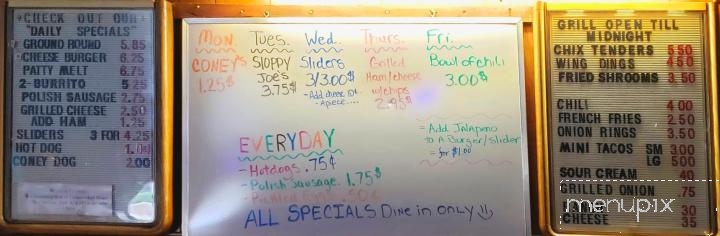 "CHECK OUT OUR
"DAILY SPECIALS"
GROUND ROUND 5.85
CHEESE BURGER 6.25
PATTY MELT 6.75
2-BURRITO 5.25
POLISH SAUSAGE 2.75
GRILLED CHEESE 2.50
ADD HAM 1.25
SLIDERS 3 FOR 4.25
HOT DOG
CONEY DOG 2.00
Mon.
CONEY'S
1.25$
Tues.
SLOPPY
Joe's
3.75$
Wed.
Sliders
3/3.00$
-Add cheese
Apiece....
Thurs.
Grilled
Ham/cheese
w/chips
2.95$
Fri.
Bowl of chili
3.00$
= Add Jalapeno
to A Burger/slider
= for $1.00
EVERYDAY
-Hotdogs .75¢
-Polish Sausage. 1.75$
-Pickled Eggs .50¢
ALL SPECIALS Dine in ONLY
GRILL OPEN TILL
MIDNIGHT
CHIX TENDERS 5 50
WING DINGS 4 50
FRIED SHROOMS 3.50
CHILI 4 00
FRENCH FRIES 2.50
ONION RINGS 3.50
MINI TACOS SM 3 00
LG 5 00
SOUR CREAM .40
GRILLED ONION .75
30
CHEESE 35
menupix